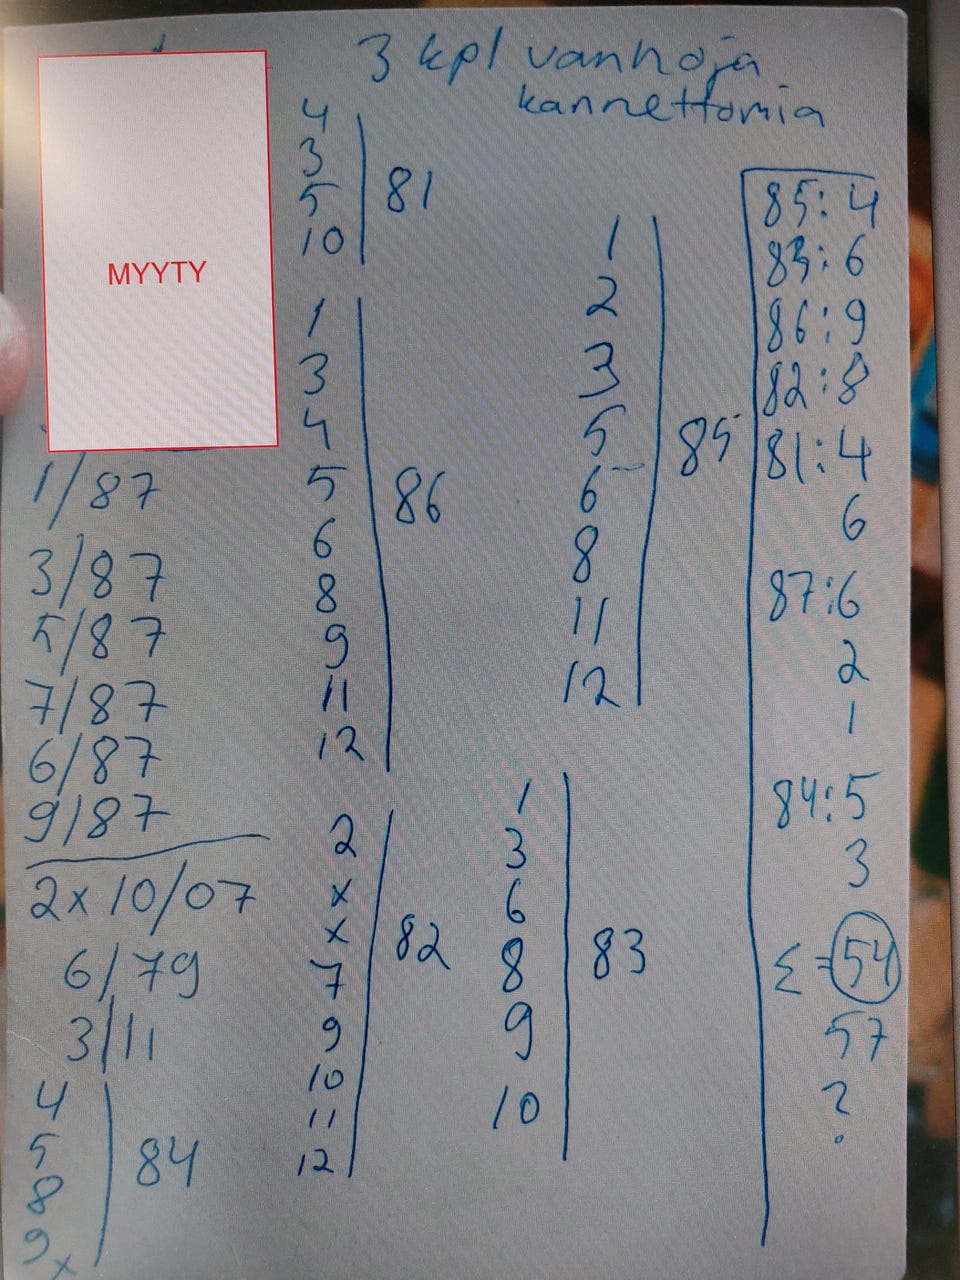 3 kpl vanhoja
kannettomia
MYYTY
1/87
3/87
5/87
7/87
6/87
9/87
2x 10/07
6/79
3/11
4
5
8
9
x
84
4
3
5
10
81
1
3
4
5
6
8
9
11
12
86
2
x
x
7
9
10
11
12
82
1
2
3
5
6
8
11
12
85
1
3
6
8
9
10
83
85:4
83:6
86:9
82:8
81:4
6
87:6
2
1
84:5
3
Σ=54
57
?